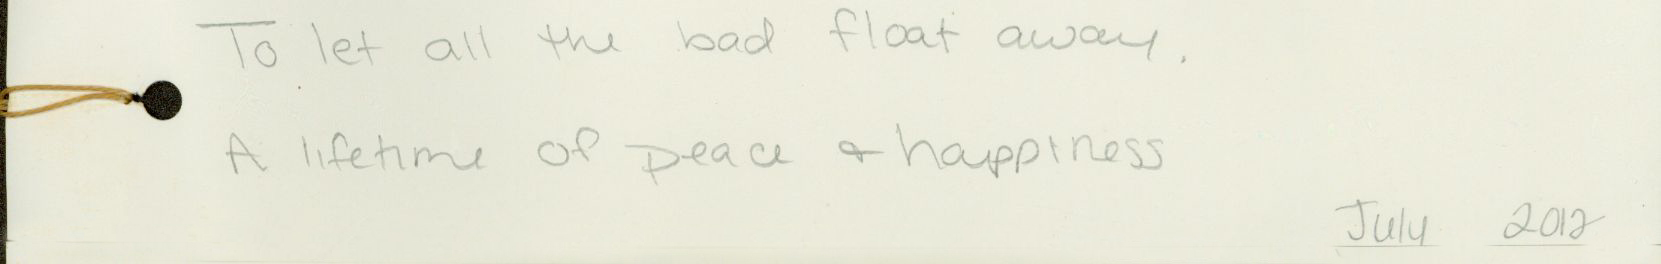 To let all the bad float away.
A lifetime of peace & happiness
July 2012